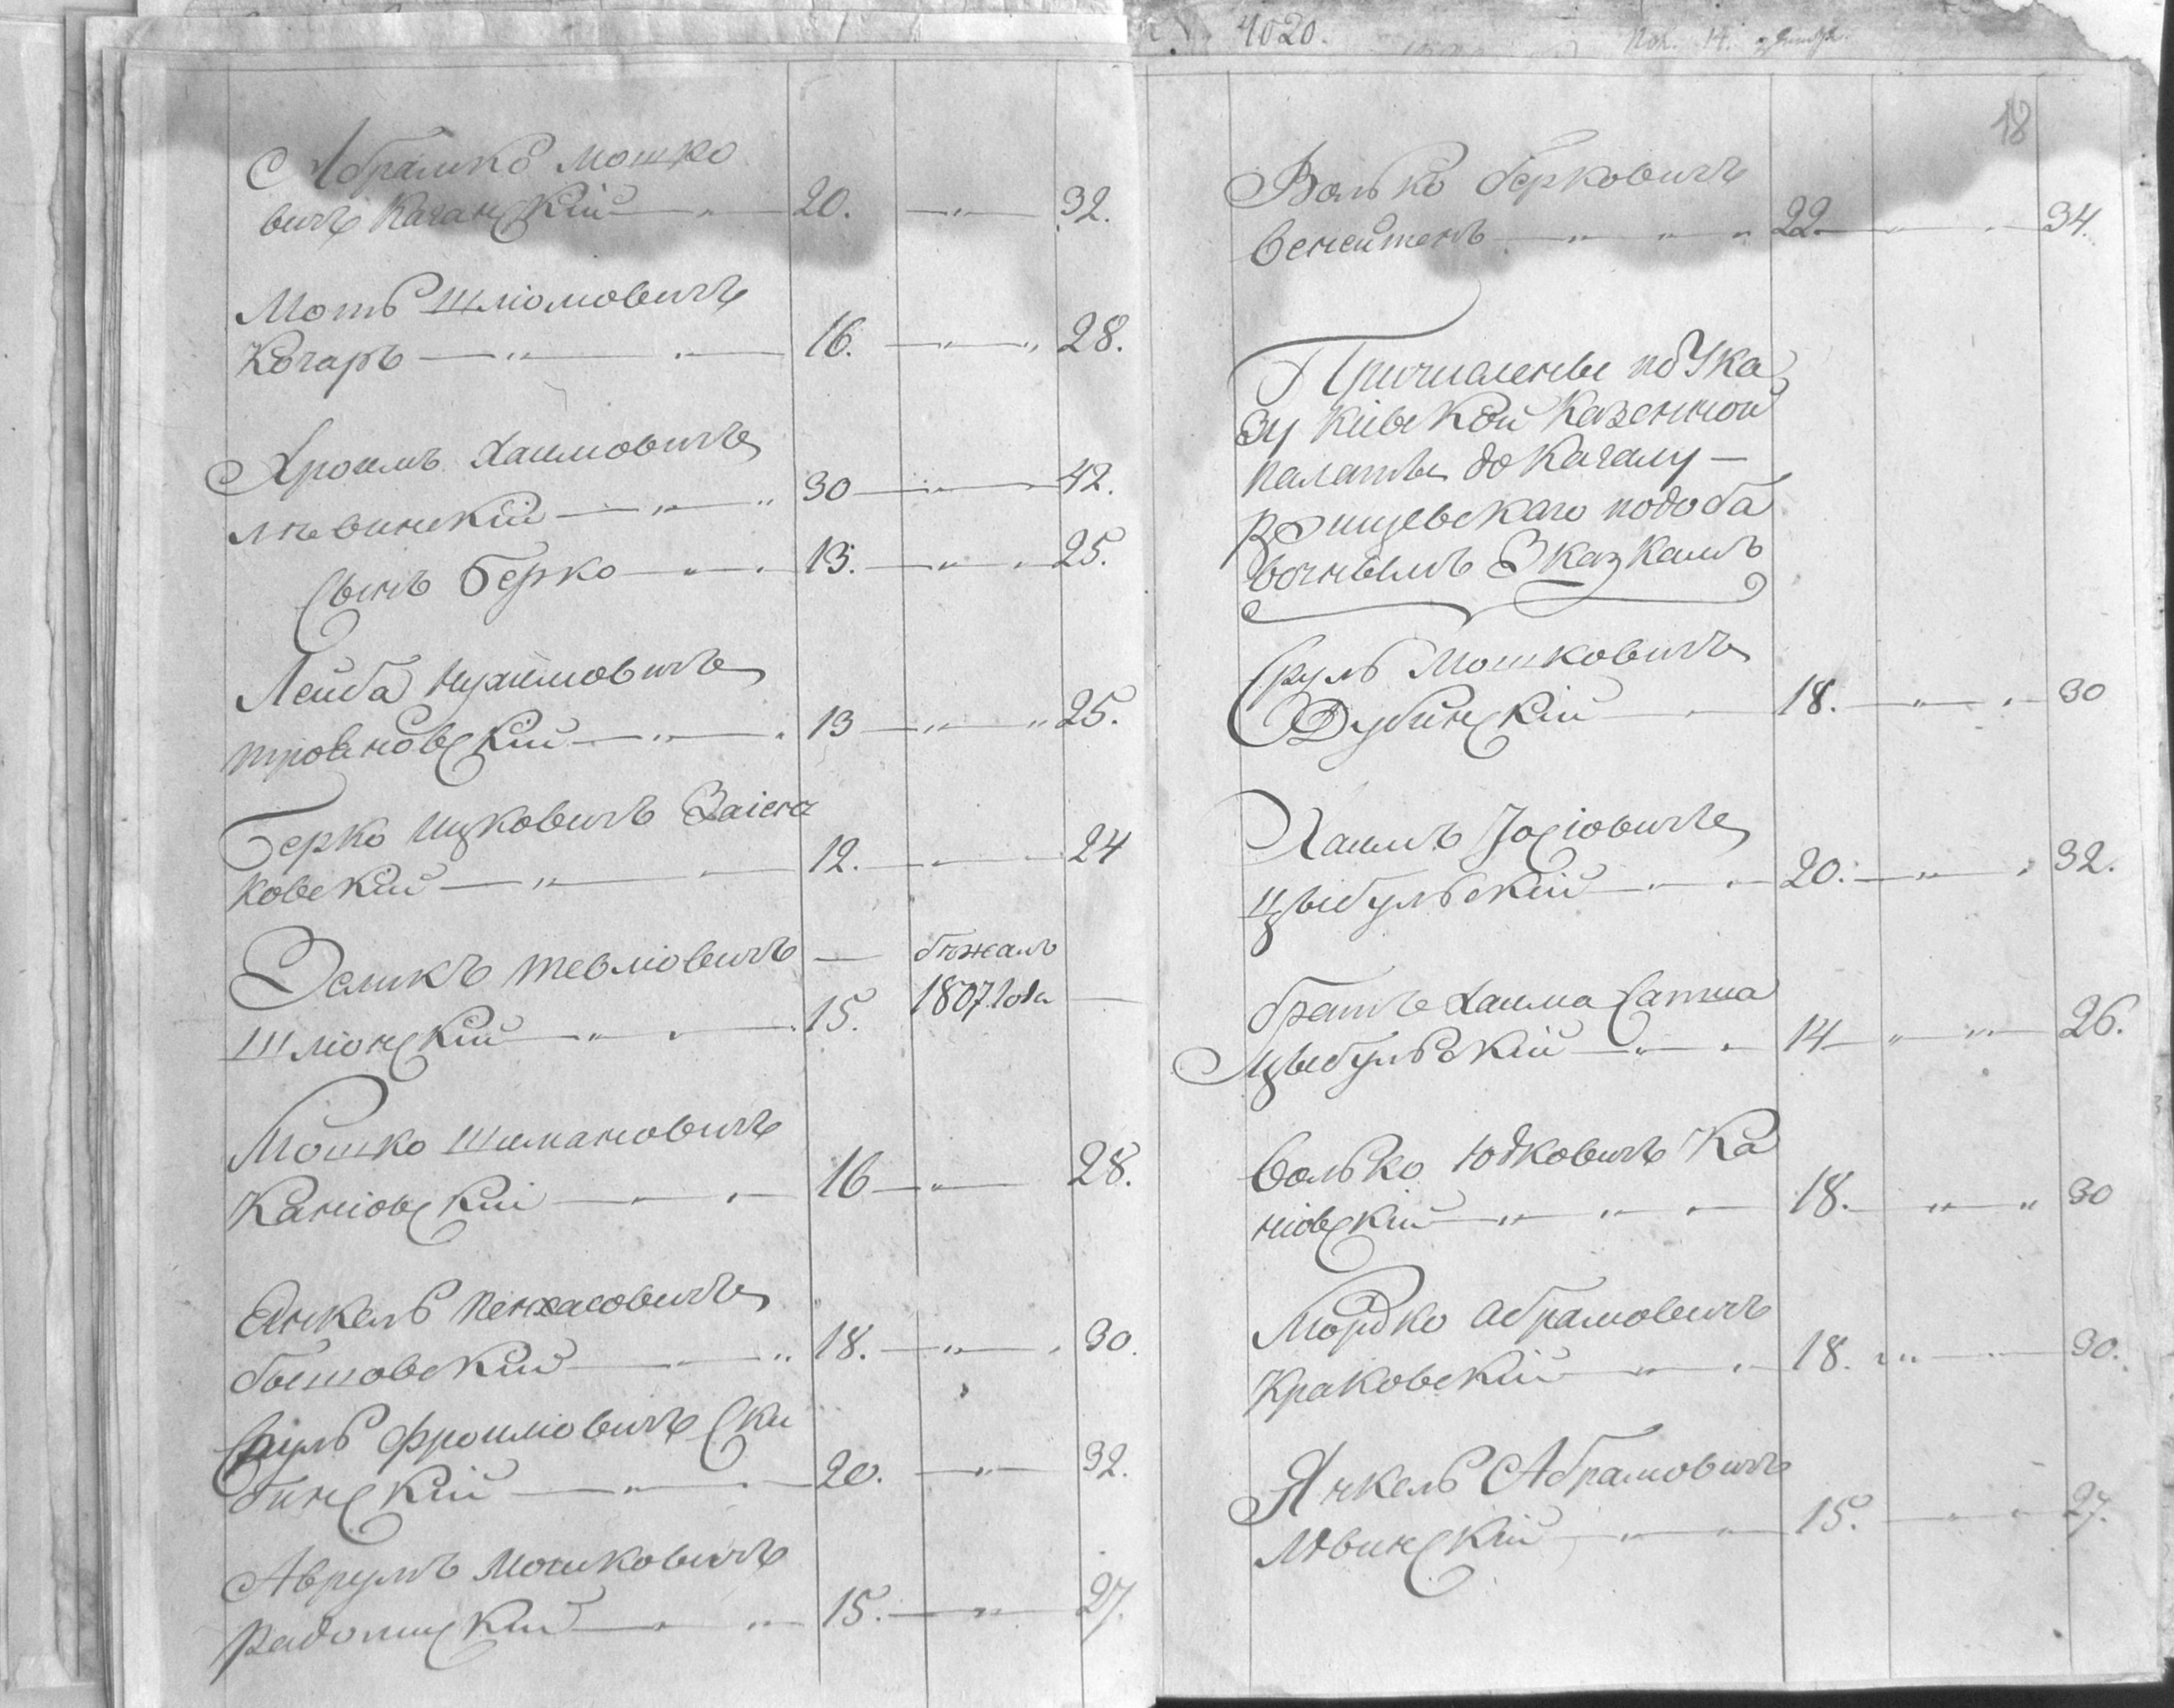 Абрамко Мошко
вичъ Каганскій 20. 32.
Мотъ Шліомовичъ
Когаръ 16. 28.
Хроимъ Хаимовичъ
лѣвинскій 30 42.
Сынъ Берко 13. 25.
Лейба Нухимовичъ
трояновскій 13 25.
Берко Ицковичъ Заіонч
ковский 12. 24
Зеликъ Тевліовичъ — бѣжалъ
Шліонскій 15. 1807 года —
Мошко Шимановичъ
Каніовскій 16 28.
Янкель Пенхасовичъ
бышовский 18. 30.
Сруль Фроимовичъ Ски
бинскій 20. 32.
Аврумъ Мошковичъ
Радомискій 15. 27.
4020.
18
Волько берковичъ
22 34.
Причисленые по Ука
зу Кіевской Казенной
палаты до Кагалу
подоба
вочнымъ Сказкамъ
Сруль Мошковичъ
Дубинскій 18. 30
Хаимъ Іосіовичъ
Цыбульский 20. 32.
братъ Хаима
Цыбульскій 14 26.
Волько Юдковичъ Ка
ніовскій 18. 30
Мордко Абрамовичъ
Краковский 18. 30.
Янкель Абрамовичъ
Лѣвинскій 15. 27.